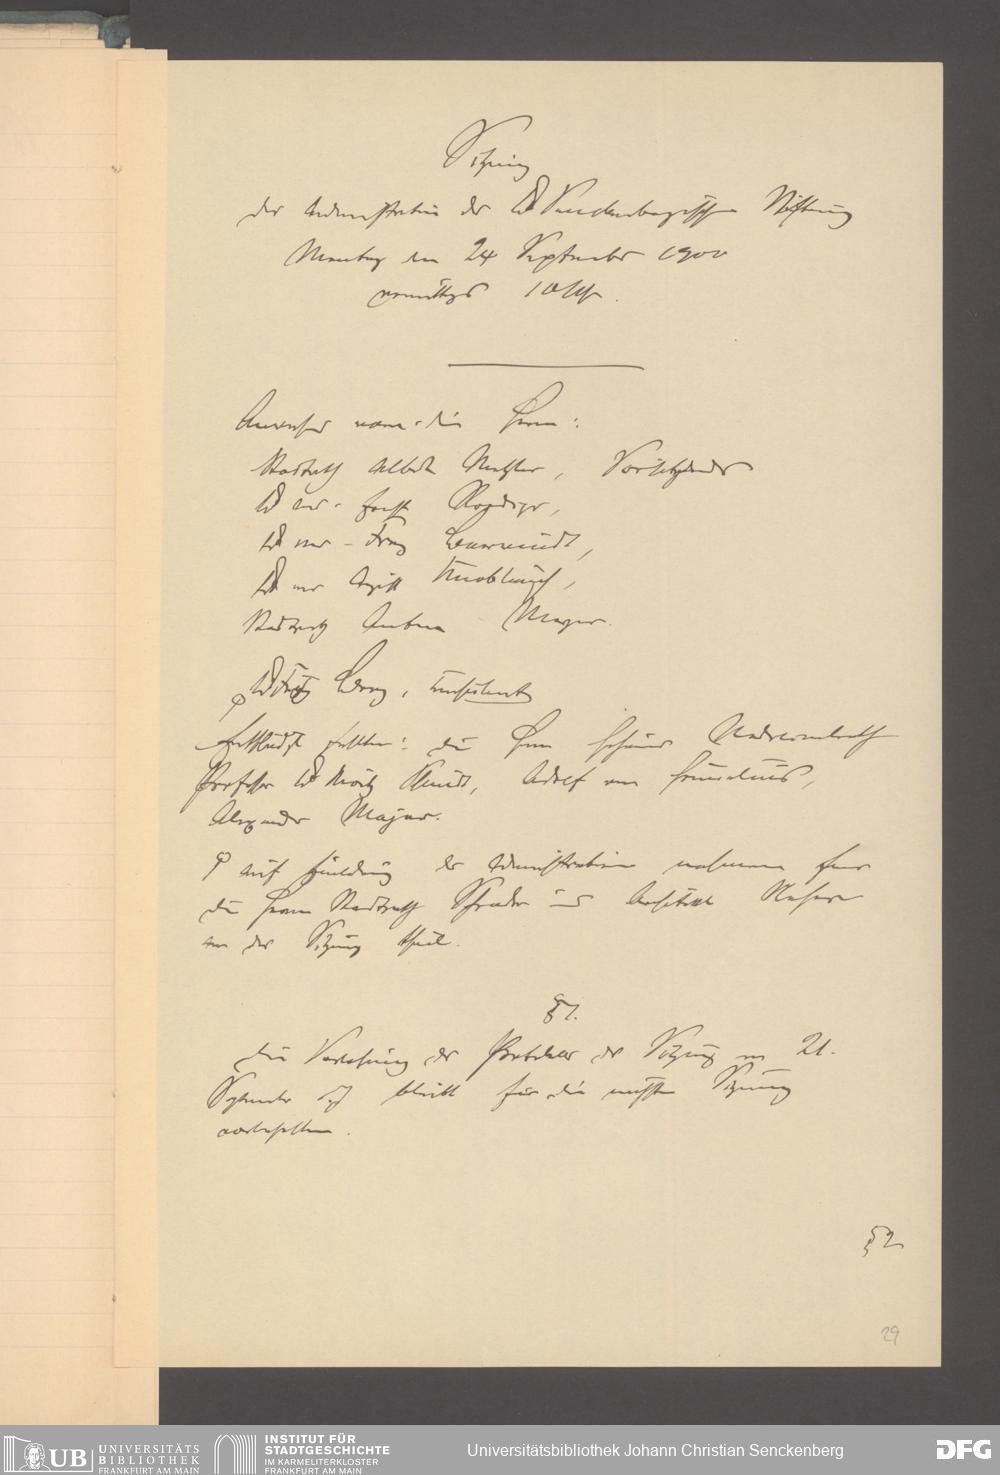 Sitzung
der Administration der Dr Senckenbergischen Stiftung
Montag den 24 September 1900
vormittags 10 Uhr.
Anwesend waren die Herrn:
Stadtrath Albert Metzler, Vorsitzender
Dr med. Ernst Roediger,
Dr med. Franz
Dr med August Knoblauch,
Stadtrath Anton Meyer.
Dr Fritz Berg, Consulent
Entschuldigt fehlten: die Herrn Geheimer Medicinalrath
Professor Dr Moritz Schmidt, Adolf von Grunelius,
Alexander Majer.
auf Einladung der Administration nahmen ferner
die Herrn Stadtrath Schrader und Architekt Neher
an der Sitzung theil.
§ 1.
Die Verlesung der Protokolle der Sitzung vom 21.
September bleibt für die nächste Sitzung
vorbehalten.
§ 2
29
UB UNIVERSITÄTS
BIBLIOTHEK
FRANKFURT AM MAIN
INSTITUT FÜR
STADTGESCHICHTE
IM KARMELITERKLOSTER
FRANKFURT AM MAIN
Universitätsbibliothek Johann Christian Senckenberg
DFG